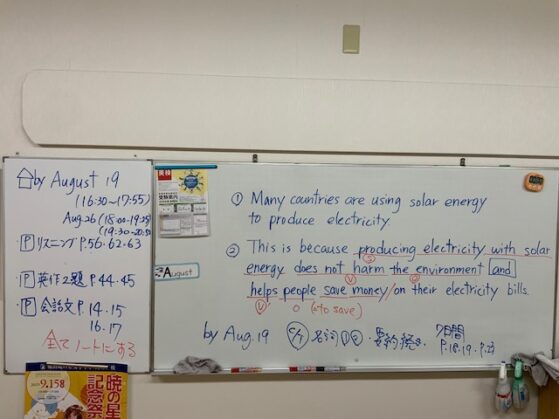 by August 19
(16:30~17:55)
Aug.26 (18:00~19:25)
(19:30~20:55)
P リスニング P.56.62.63
P 英作2題 P.44.45
P 会話文 P.14.15
16.17
全てノートにする
9,158
暁の星
記念祭
英検
August
① Many countries are using solar energy
to produce electricity.
② This is because producing electricity with solar
energy does not harm the environment and
helps people save money/on their electricity bills.
S
V O
V' O (to save)
by Aug. 19 名詞①② 要約続き 7日間
P.18.19